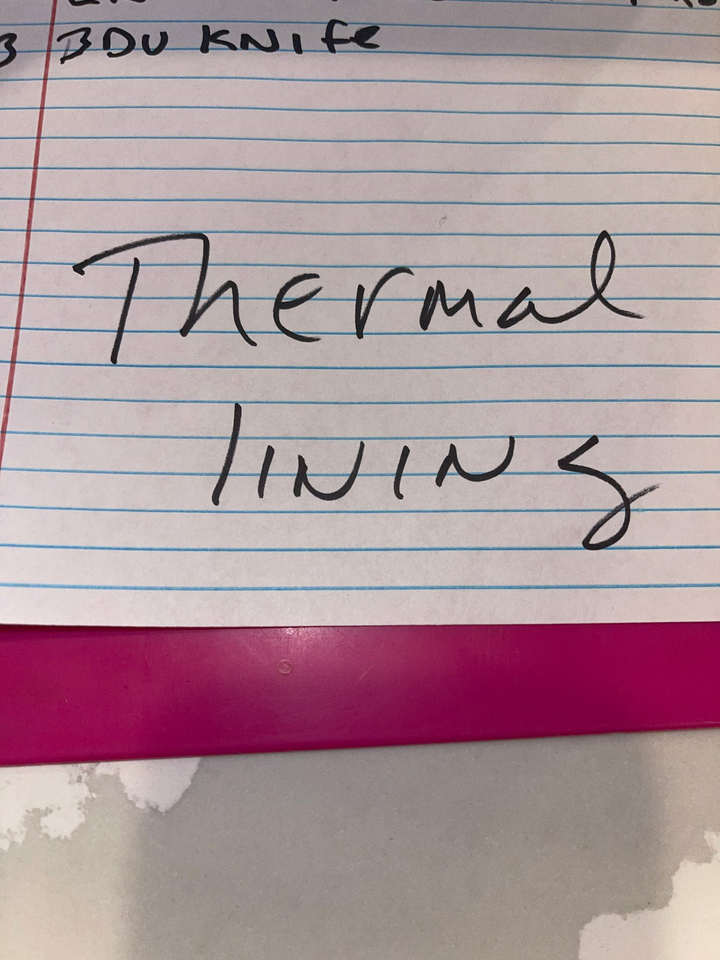 3 BDU KNIFE
Thermal
lining